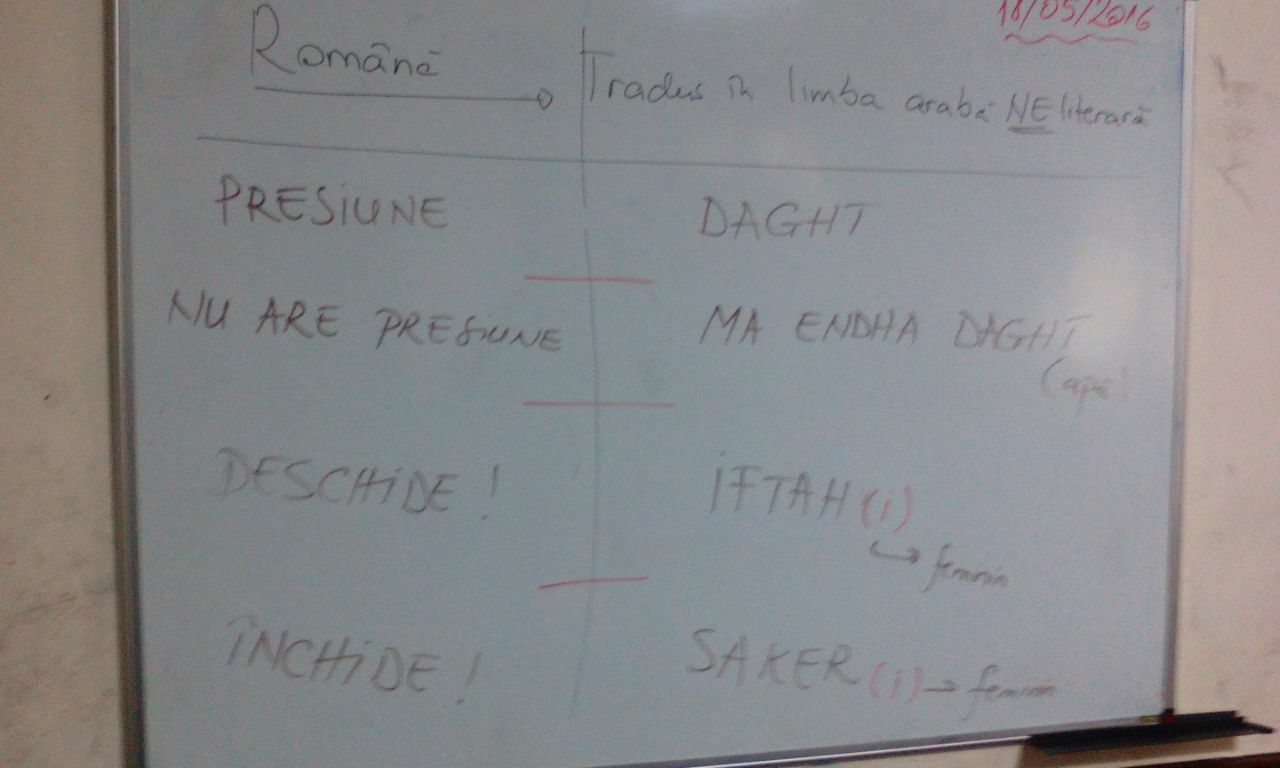 18/05/2016
Română Tradus în limba arabă NEliterară
PRESIUNE DAGHT
NU ARE PRESIUNE MA ENDHA DAGHT
(apă)
DESCHIDE! IFTAH(i)
feminin
ÎNCHIDE! SAKER(i)→ feminin